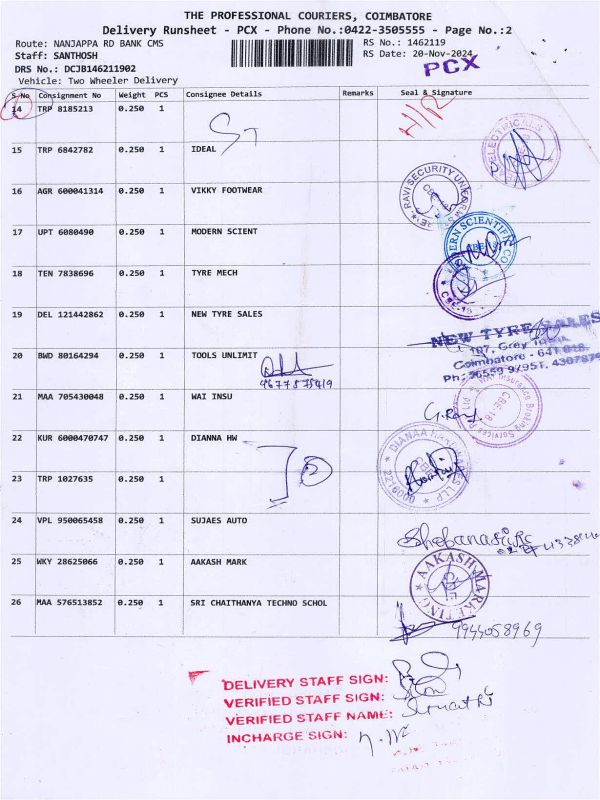 THE PROFESSIONAL COURIERS, COIMBATORE
Delivery Runsheet - PCX - Phone No.:0422-3505555 - Page No.:2
Route: NANJAPPA RD BANK CMS
RS No.: 1462119
Staff: SANTHOSH
RS Date: 20-Nov-2024
DRS No.: DCJB146211902
PCX
Vehicle: Two Wheeler Delivery
S No Consignment No Weight PCS Consignee Details Remarks Seal & Signature
14 TRP 8185213 0.250 1
15 TRP 6842782 0.250 1 IDEAL
16 AGR 600041314 0.250 1 VIKKY FOOTWEAR
17 UPT 6080490 0.250 1 MODERN SCIENT
18 TEN 7838696 0.250 1 TYRE MECH
19 DEL 121442862 0.250 1 NEW TYRE SALES
20 BWD 80164294 0.250 1 TOOLS UNLIMIT
21 MAA 705430048 0.250 1 WAI INSU
22 KUR 6000470747 0.250 1 DIANNA HW
23 TRP 1027635 0.250 1
24 VPL 950065458 0.250 1 SUJAES AUTO
25 WKY 28625066 0.250 1 AAKASH MARK
AAKASH MARKETING
26 MAA 576513852 0.250 1 SRI CHAITHANYA TECHNO SCHOL
9944058969
DELIVERY STAFF SIGN:
VERIFIED STAFF SIGN:
VERIFIED STAFF NAME:
INCHARGE SIGN: